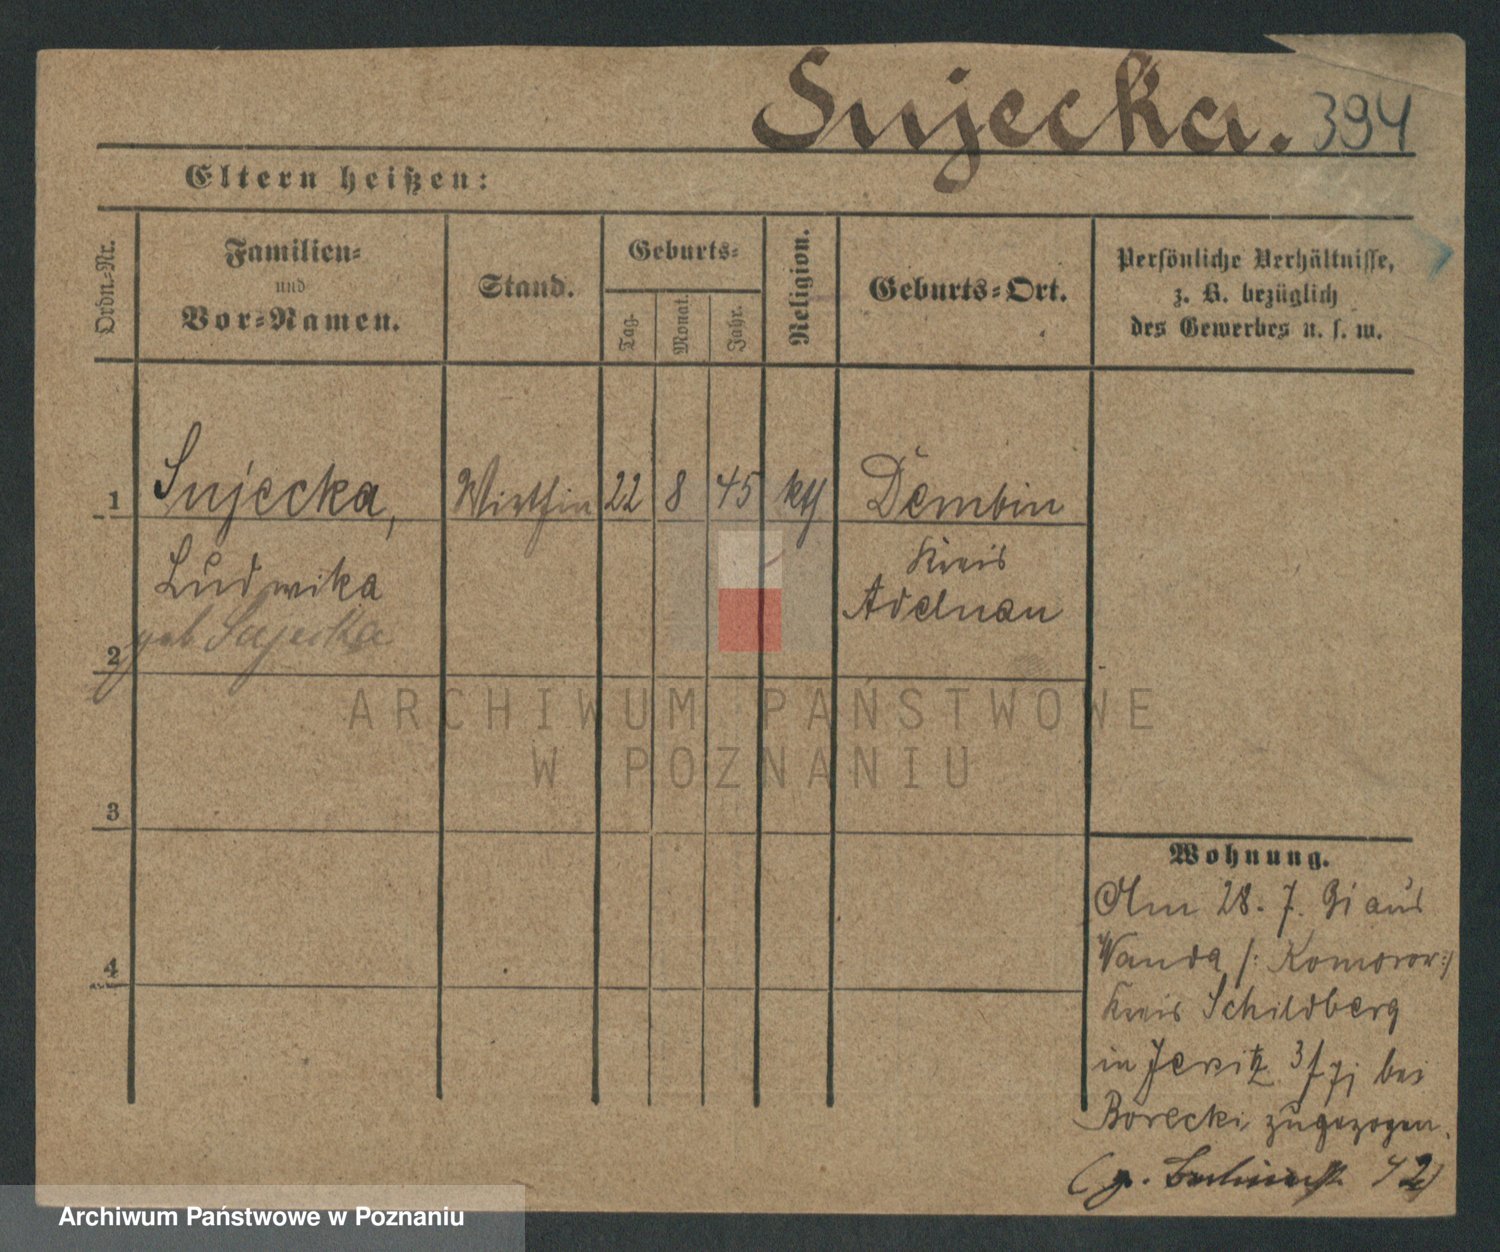 Snjecka. 394
Eltern heißen:
Ordn.-Nr.
Familien-
und
Vor-Namen.
Stand.
Geburts-
Tag.
Monat.
Jahr.
Religion.
Geburts-Ort.
Persönliche Verhältnisse,
z. B. bezüglich
des Gewerbes u. s. w.
1 Snjecka, Wirthin 22 8 45 kth Dembin
Ludwika
Kreis
Adelnau
2 geb
3
4
ARCHIWUM PAŃSTWOWE
W POZNANIU
Wohnung.
Am 28. 7. 91 aus
Wanda /: Komorow :/
Kreis Schildberg
in Jersitz bei
Borecki zugezogen.
Archiwum Państwowe w Poznaniu